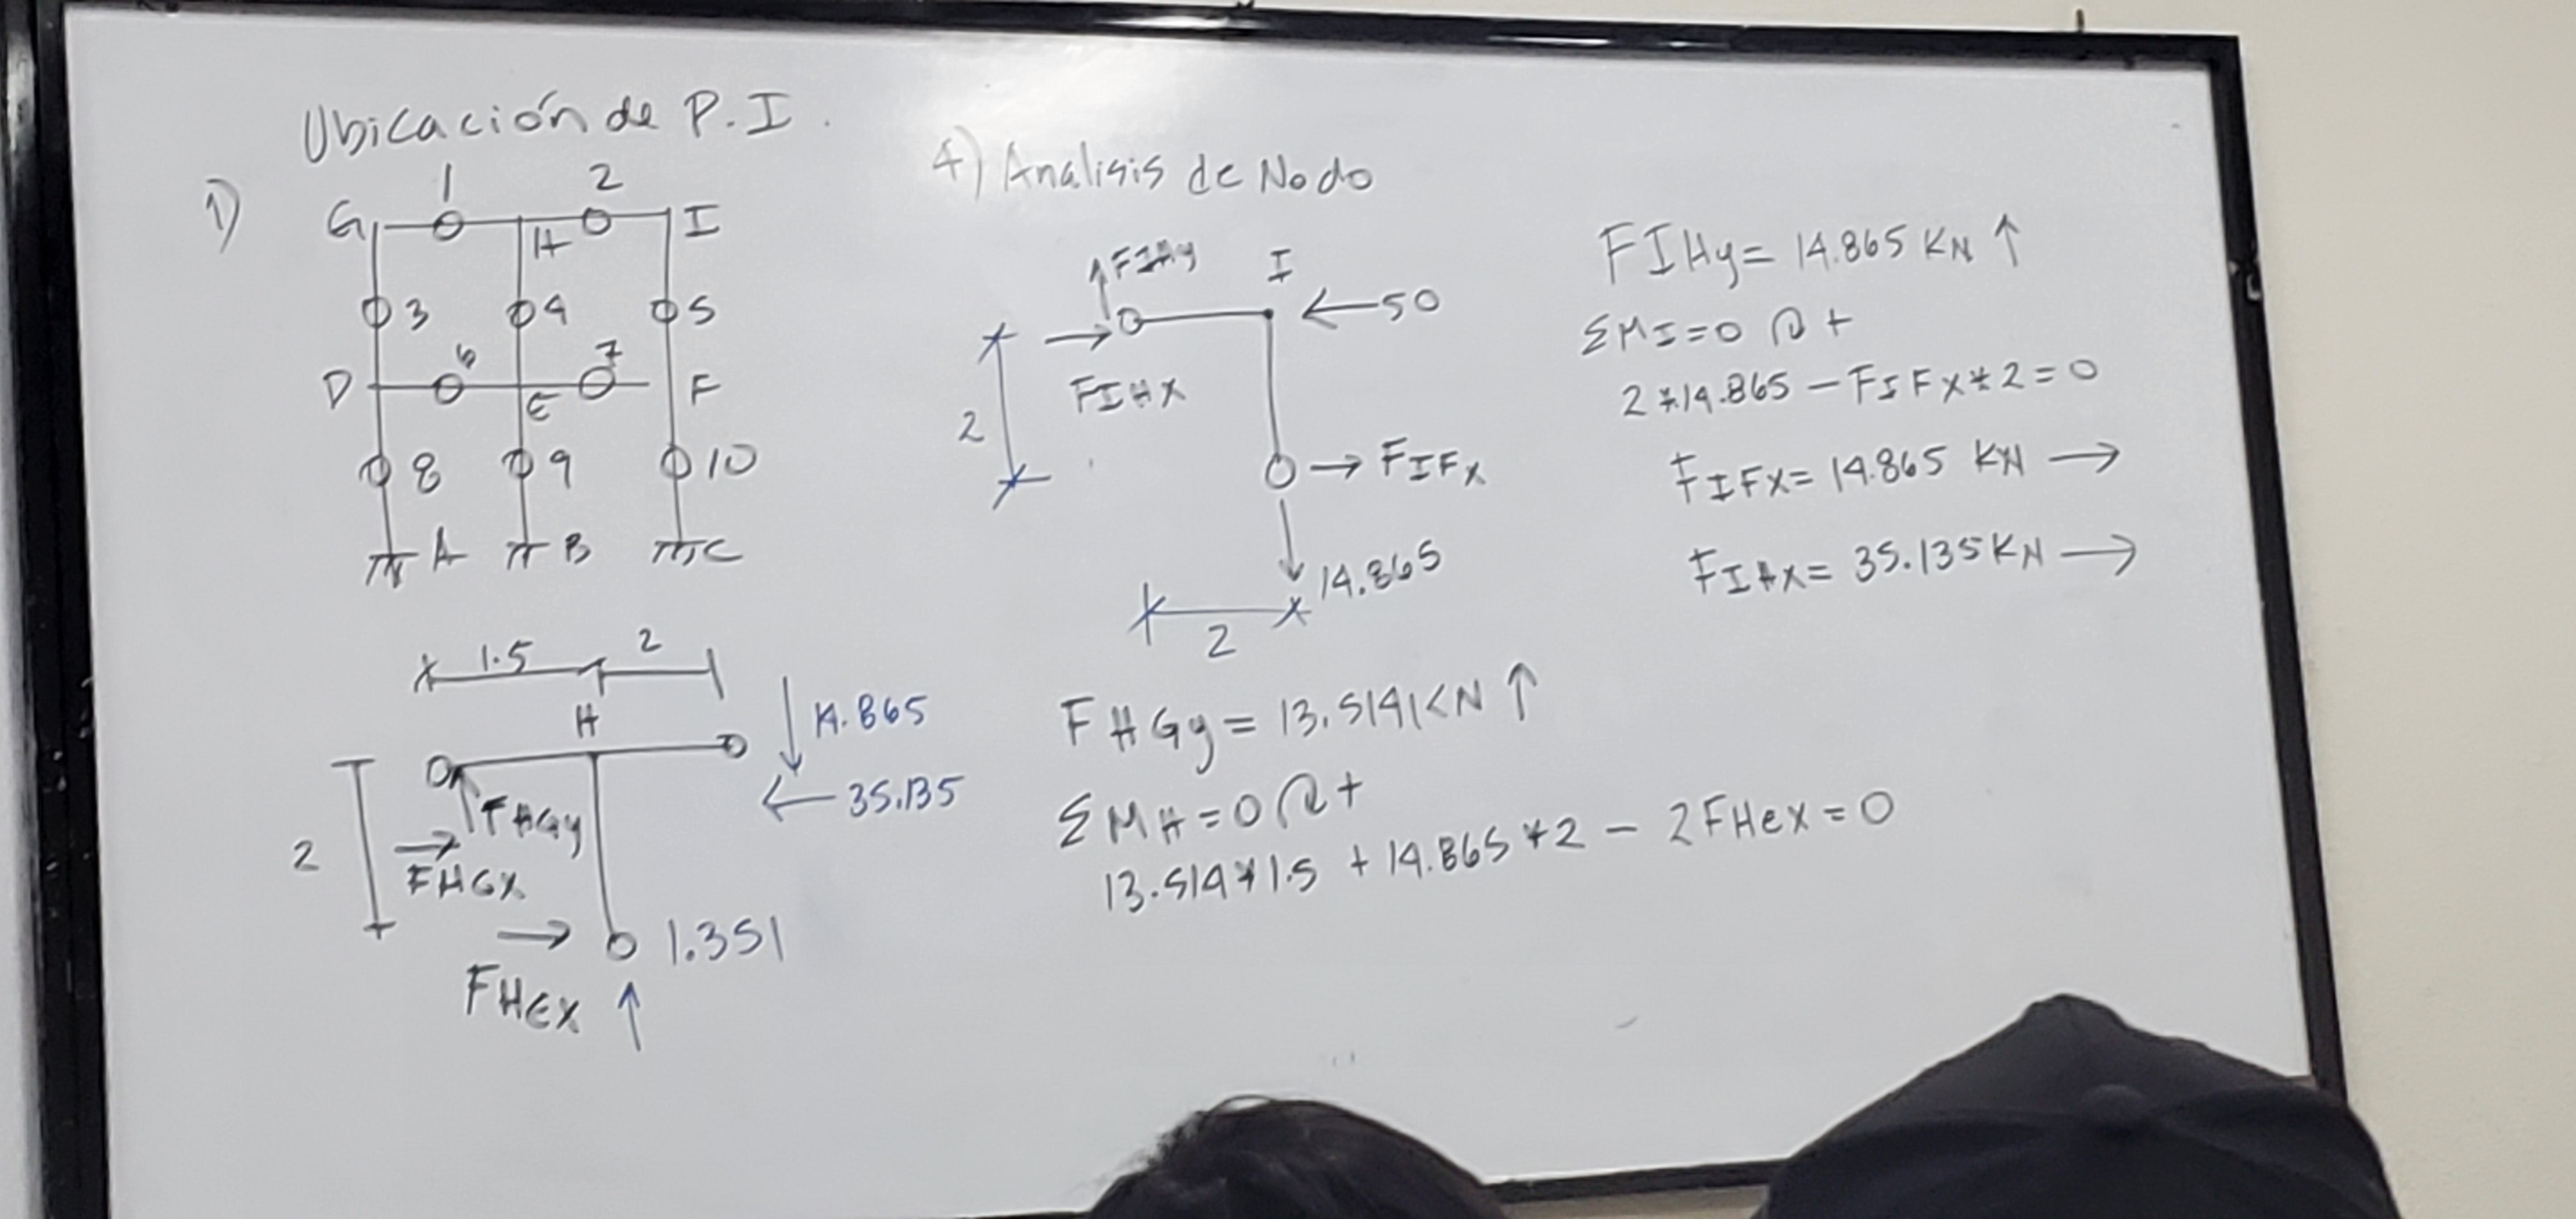 Ubicación de P.I.
1)
1 2
G H I
3 4 5
6 7
D E F
8 9 10
A B C
4) Analisis de Nodo
FIHy I
←50
FIHX
2
→ FIFX
14.865
2
FIHy = 14.865 KN ↑
ΣMI=0 ↻+
2*14.865 - FIFX*2=0
FIFX= 14.865 KN →
FIHX= 35.135KN →
1.5 2
H
↓ 14.865
← 35.135
FHGy
2
→
FHGX
→ 1.351
FHEX ↑
FHGy = 13.514KN ↑
ΣMH=0 ↻+
13.514*1.5 + 14.865*2 - 2FHeX=0